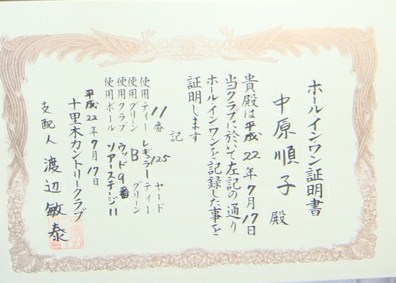 ホールインワン証明書
中原順子 殿
貴殿は平成22年7月17日
当クラブに於いて左記の通り
ホールインワンを記録した事を
証明します
記
11番 125ヤード
使用ティー レギュラーティー
使用グリーン B グリーン
使用クラブ ウッド9番
使用ボール ツアーステージ11
平成22年7月17日
十里木カントリークラブ
支配人 渡辺敏泰